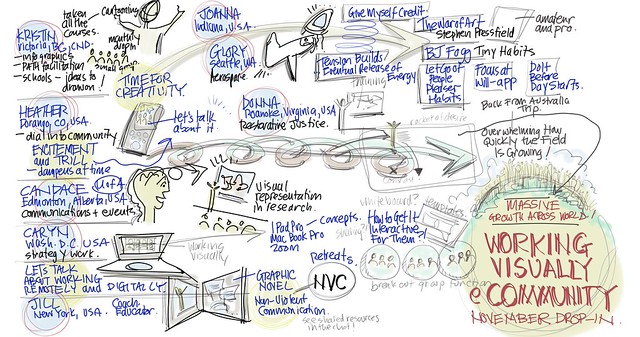 KRISTIN
Victoria, BC, CND.
- infographics
- DATA facilitation
- schools - ideas to
drawon!
taken
all the
courses.
cartooning
monthly
dropin
small group
TIME FOR
CREATIVITY.
JOANNA
Indiana, U.S.A.
GLORY
Seattle, WA.
Give Myself Credit
Tension Builds
Eventual Release of
Energy
The War of Art
Stephen Pressfield
amateur
and pro.
BJ Fogg Tiny Habits
Let Go of
People
Pleaser
Habits
Focus at
Will - APP
Do It
Before
Day Starts.
Back from Australia
Trip.
HEATHER
Durango, CO, USA
- dial into community
EXCITEMENT
and TRILL
- dangeus at time
Let's talk
about it.
DONNA
Roanoke, Virginia, USA
Restorative Justice.
Overwhelming How
Quickly the Field
IS Growing!
U of A
CANDACE
Edmonton, Alberta, USA
communications + events.
Visual
representation
in research.
CARYN
Wash. D.C. USA
strategy work.
working
visually
IPad Pro
Mac Book Pro
zoom
Concepts.
whiteboard?
How to Get It
Interactive
For Them?
templates
LET'S TALK
ABOUT WORKING
REMOTELY and DIGITALLY.
JILL
New York, USA.
Coach
Educator.
GRAPHIC
NOVEL
Non-Violent
Communication.
Retreats.
NVC
see shared resources
in the chat!
break out group function
MASSIVE
GROWTH ACROSS WORLD!
WORKING
VISUALLY
e COMMUNITY
NOVEMBER DROP-IN.